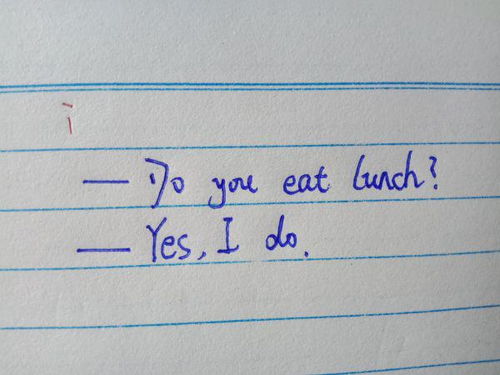 — Do you eat lunch?
— Yes, I do.